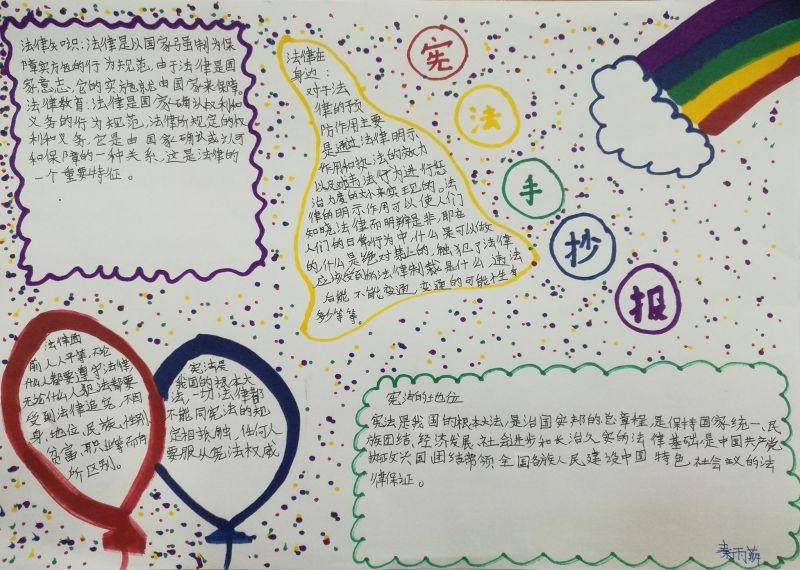 宪
法
手
抄
报
法律知识:法律是以国家强制为保
障实施的行为规范,由于法律是国
家意志,它的实施就由国家来保障。
法律教育:法律是国家确认权利和
义务的行为规范,法律所规定的权
利和义务,它是由国家确认或认可
和保障的一种关系,这是法律的
一个重要特征。
法律在
身边:
对于法
律的预
防作用主要
是通过法律明示
作用和执法的效力
以及对违法行为进行惩
治力度的大小来实现的。法
律的明示作用可以使人们
知晓法律而明辨是非,即在
人们的日常行为中,什么是可以做
的,什么是绝对禁止的,触犯了法律
应该受到的法律制裁是什么,违法
后能不能变通,变通的可能性有
多少等等。
法律面
前人人平等,不论
什么人都要遵守法律,
无论什么人犯法都要
受到法律追究,不因
身、地位、民族、性别、
贫富、职业等而有
所区别。
宪法是
我国的根本大
法,一切法律都
不能同宪法的规
定相抵触,任何人
要服从宪法权威
宪法的地位
宪法是我国的根本大法,是治国安邦的总章程,是保持国家统一、民
族团结、经济发展、社会进步和长治久安的法律基础,是中国共产党
执政兴国、团结带领全国各族人民建设中国特色社会主义的法
律保证。